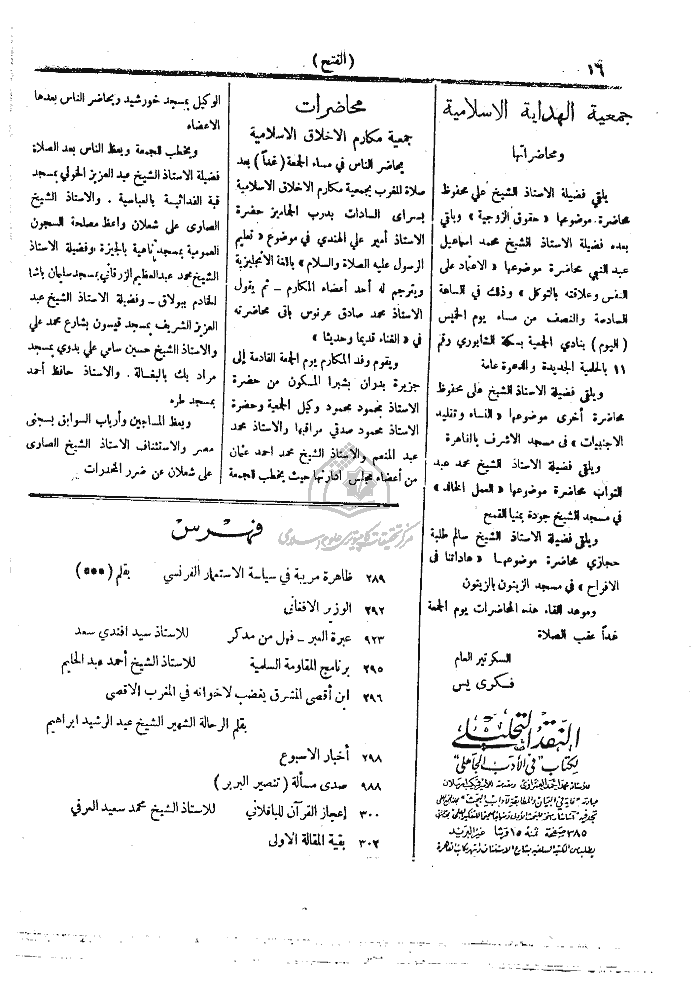 ١٦
(الفتح)
جمعية الهداية الاسلامية
ومحاضراتها
يلقي فضيلة الاستاذ الشيخ علي محفوظ
محاضرة موضوعها « حقوق الزوجية » ويلقي
بعده فضيلة الاستاذ الشيخ محمد اسماعيل
عبد النبي محاضرة موضوعها « الاعتماد على
النفس وعلاقته بالتوكل » وذلك في الساعة
السادسة والنصف من مساء يوم الخميس
(اليوم) بنادي الجمعية بسكة الشابوري رقم
١١ بالحلمية الجديدة والدعوة عامة
ويلقي فضيلة الاستاذ الشيخ على محفوظ
محاضرة أخرى موضوعها « النساء وتقليد
الاجنبيات » في مسجد الاشرف بالقاهرة
ويلقي فضيلة الاستاذ الشيخ محمد عبد
التواب محاضرة موضوعها « العمل الخالد »
في مسجد الشيخ جودة بمنيا القمح
ويلقي فضيلة الاستاذ الشيخ سالم طلبة
حجازي محاضرة موضوعها « عاداتنا في
الافراح » في مسجد الزيتون بالزيتون
وموعد القاء هذه المحاضرات يوم الجمعة
غداً عقب الصلاة
السكرتير العام
فكرى يس
النقد التحليلي
لكتاب "في الأدب الجاهلي"
٣٨٥ صفحة ثمنه ١٥ قرشا غير البريد
يطلب من المكتبة السلفية بشارع الاستئناف
محاضرات
جمعية مكارم الاخلاق الاسلامية
يحاضر الناس في مساء الجمعة (غداً) بعد
صلاة المغرب بجمعية مكارم الاخلاق الاسلامية
بسراى السادات بدرب الجماميز حضرة
الاستاذ أمير علي الهندي في موضوع « تعليم
الرسول عليه الصلاة والسلام » باللغة الانجليزية
ويترجم له أحد أعضاء المكارم ــ ثم يقول
الاستاذ محمد صادق عرنوس باقى محاضرته
في « الغناء قديما وحديثا »
ويقوم وفد المكارم يوم الجمعة القادمة إلى
جزيرة بدران بشبرا المسكون من حضرة
الاستاذ محمود محمود وكيل الجمعية وحضرة
الاستاذ محمود صدقي مراقبها والاستاذ محمد
عبد المنعم والاستاذ الشيخ محمد احمد عثمان
من أعضاء مجلس ادارتها حيث يخطب للجمعة
الوكيل بمسجد خورشيد ويحاضر الناس بعدها
الاعضاء
ويخطب للجمعة ويعظ الناس بعد الصلاة
فضيلة الاستاذ الشيخ عبد العزيز الخولي بمسجد
قبة الفدائية بالعباسية . والاستاذ الشيخ
الصاوى على شعلان واعظ مصلحة السجون
العمومية بمسجد ناهية بالجيزة ، وفضيلة الاستاذ
الشيخ محمد عبدالعظيم الزرقاني بمسجد سليمان باشا
الخادم ببولاق ــ وفضيلة الاستاذ الشيخ عبد
العزيز الشريف بمسجد قيسون بشارع محمد علي
والاستاذ الشيخ حسنين سامي علي بدوي بمسجد
مراد بك بالبغالة . والاستاذ حافظ أحمد
بمسجد طره
ويعظ المساجين وأرباب السوابق بسجنى
مصر والاستئناف الاستاذ الشيخ الصاوى
على شعلان عن ضرر المخدرات
مركز تحقيقات كامپيوتري علوم اسلامي
فهرس
٢٨٩ ظاهرة مريبة في سياسة الاستعمار الفرنسي بقلم (***)
٢٩٢ الوزير الافغانى
٩٢٣ عبرة العبر ــ فهل من مدكر للاستاذ سيد افندي سعد
٢٩٥ برنامج للمقاومة السلمية للاستاذ الشيخ أحمد عبد الحليم
٢٩٦ ابن أقصى المشرق يغضب لاخوانه في المغرب الاقصى
بقلم الرحالة الشهير الشيخ عبد الرشيد ابراهيم
٢٩٨ أخبار الاسبوع
٩٨٨ صدى مسألة (تنصير البربر)
٣٠٠ إعجاز القرآن للباقلاني للاستاذ الشيخ محمد سعيد العرفي
٣٠٢ بقية المقالة الاولى